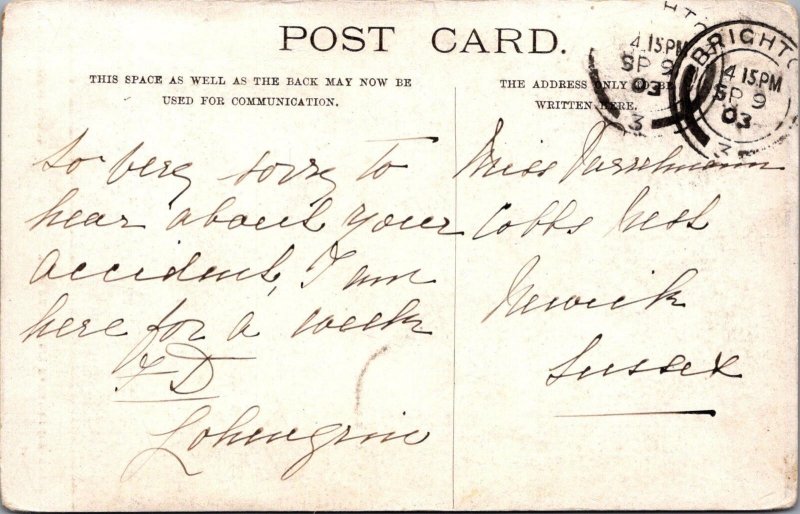 POST CARD.
THIS SPACE AS WELL AS THE BACK MAY NOW BE
USED FOR COMMUNICATION.
THE ADDRESS ONLY TO BE
WRITTEN HERE.
BRIGHTO
4.15PM
SP 9
03
3
HT
4.15PM
SP 9
03
3
So very sorry to
hear about your
accident, I am
here for a week
F D
Lohengrin
Miss
Cobbs Nest
Newick
Sussex